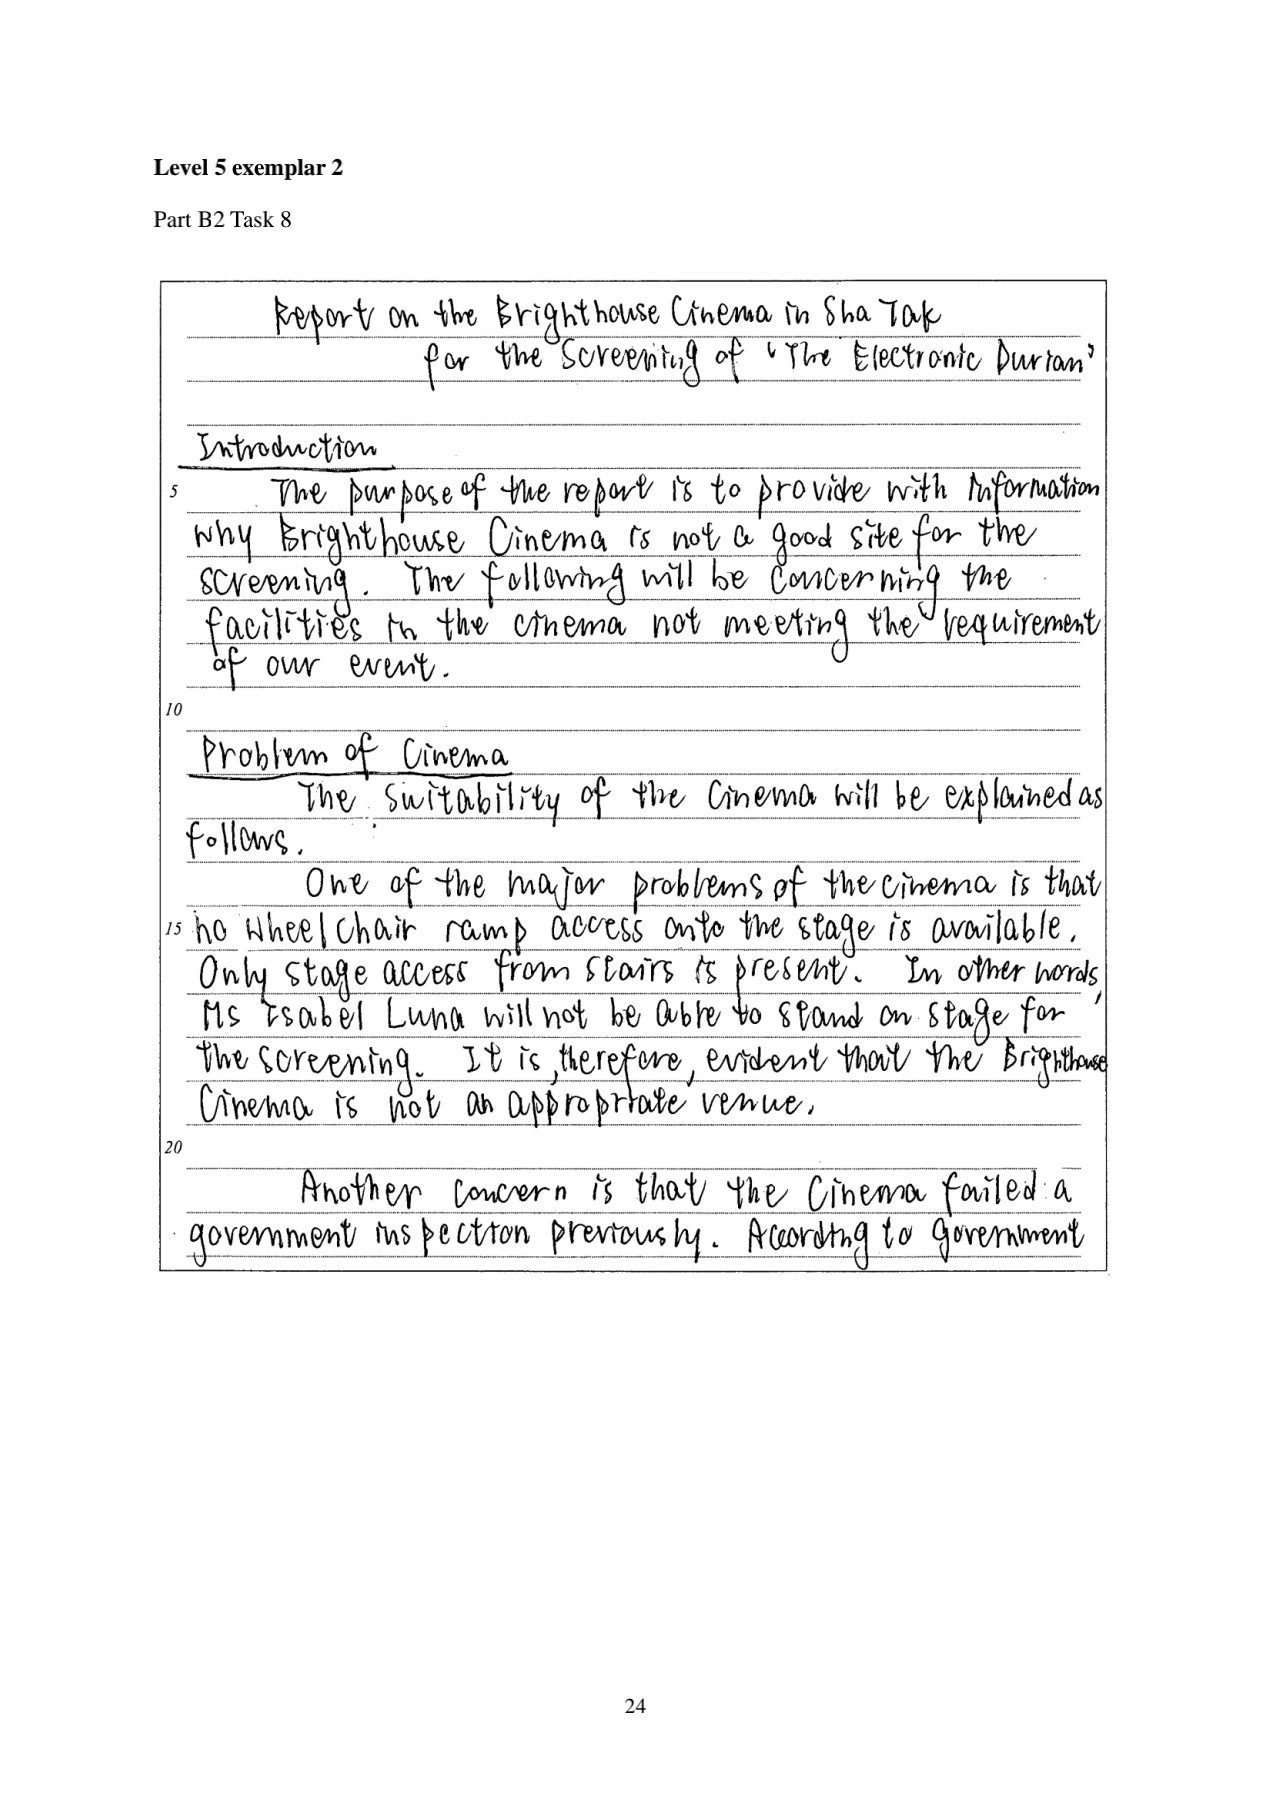 Level 5 exemplar 2
Part B2 Task 8
Report on the Brighthouse Cinema in Sha Tak
for the Screening of 'The Electronic Durian'
Introduction
5 The purpose of the report is to provide with information
why Brighthouse Cinema is not a good site for the
screening. The following will be concerning the
facilities in the cinema not meeting the requirement
of our event.
10
Problem of Cinema
The suitability of the Cinema will be explained as
follows.
One of the major problems of the cinema is that
15 no wheelchair ramp access onto the stage is available.
Only stage access from stairs is present. In other words,
Ms Isabel Luna will not be able to stand on stage for
the screening. It is, therefore, evident that the Brighthouse
Cinema is not an appropriate venue.
20
Another concern is that the Cinema failed a
government inspection previously. According to Government
24